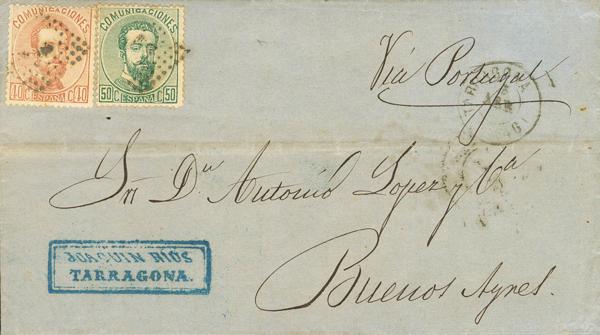 COMUNICACIONES
40 C. ESPAÑA C. 40
COMUNICACIONES
50 C. ESPAÑA C. 50
Via Portugal
TARRAGONA
Sr. Dn. Antonio Lopez y Ca
JOAQUIN RIUS
TARRAGONA.
Buenos Ayres.